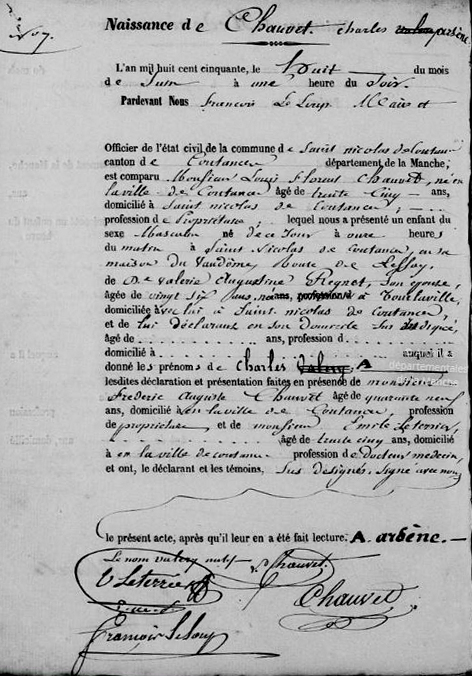 N° 7.
Naissance de Chauvet. charles valery arsène
L'an mil huit cent cinquante, le huit du mois
de Juin à une heure du Soir.
Pardevant Nous françois Le Loup, Maire et
Officier de l'état civil de la commune de Saint nicolas de Coutances
canton de Coutances département de la Manche,
est comparu Monsieur Louis Florent Chauvet, né en
la ville de Coutances âgé de trente Cinq ans,
domicilié à Saint nicolas de Coutances,
profession de Propriétaire, lequel nous a présenté un enfant du
sexe Masculin né de ce Jour à onze heures
du matin à Saint Nicolas de coutances, en sa
maison du Vaudôme, Route de Lessay,
de De Valérie Augustine Regnet, Son épouse,
âgée de vingt six ans, née ans, profession d à Tourlaville,
domiciliée avec lui à Saint nicolas de Coutances,
et de lui déclarant en son domicile sus désigné,
âgé de ans, profession d
domicilié à auquel il a
donné les prénoms de Charles Valery, A
départementales
lesdites déclaration et présentation faites en présence de monsieur
Frederic Auguste Chauvet âgé de quarante neuf
ans, domicilié à en la ville de Coutances, profession
de propriétaire et de monsieur Emile Leterrier,
âgé de trente cinq ans, domicilié
à en la ville de coutances profession de docteur medecin,
et ont, le déclarant et les témoins, sus désignés, signé avec nous
le présent acte, après qu'il leur en a été fait lecture. A. arsène.
Le nom valery nul
Chauvet.
Leterrier
Chauvet
François Leloup